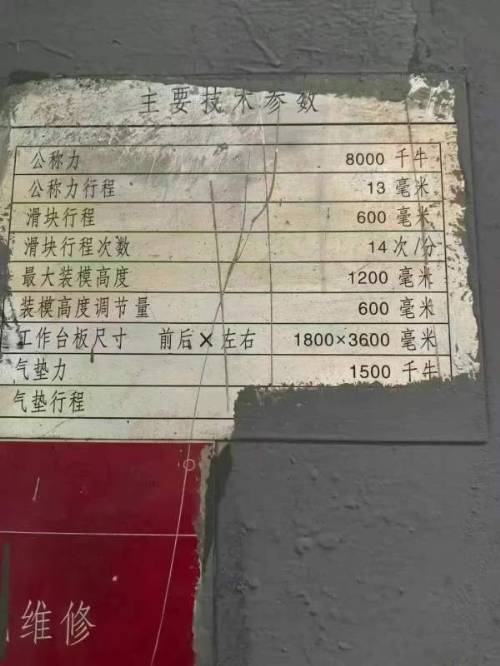 主要技术参数
公称力 8000 千牛
公称力行程 13 毫米
滑块行程 600 毫米
滑块行程次数 14 次/分
最大装模高度 1200 毫米
装模高度调节量 600 毫米
工作台板尺寸 前后×左右 1800×3600 毫米
气垫力 1500 千牛
气垫行程
维修